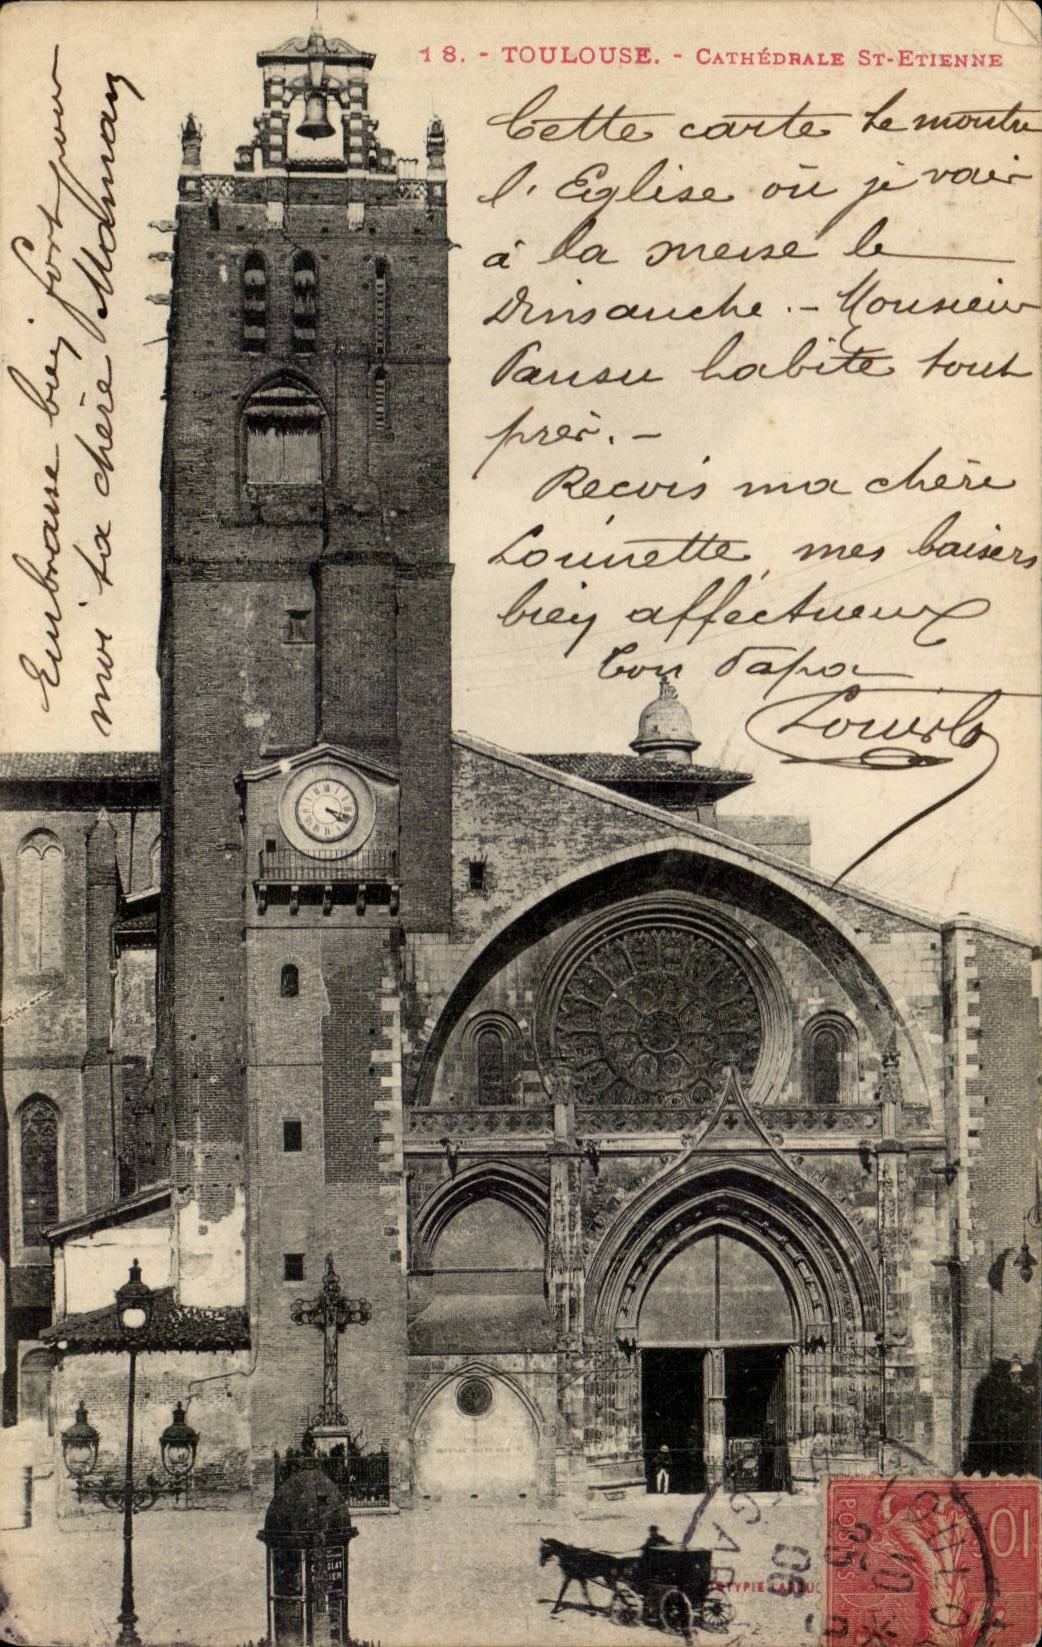 18. - TOULOUSE. - CATHÉDRALE ST-ETIENNE
Cette carte te montre
l'Eglise où je vais
à la messe le
Dimanche. - Monsieur
Pansu habite tout
près. -
Reçois ma chère
Louisette, mes baisers
bien affectueux
Ton Papa
Embrasse bien fort pour
moi ta chère Maman
CHOCOLAT
POSTES
10
TOULOUSE
GARE